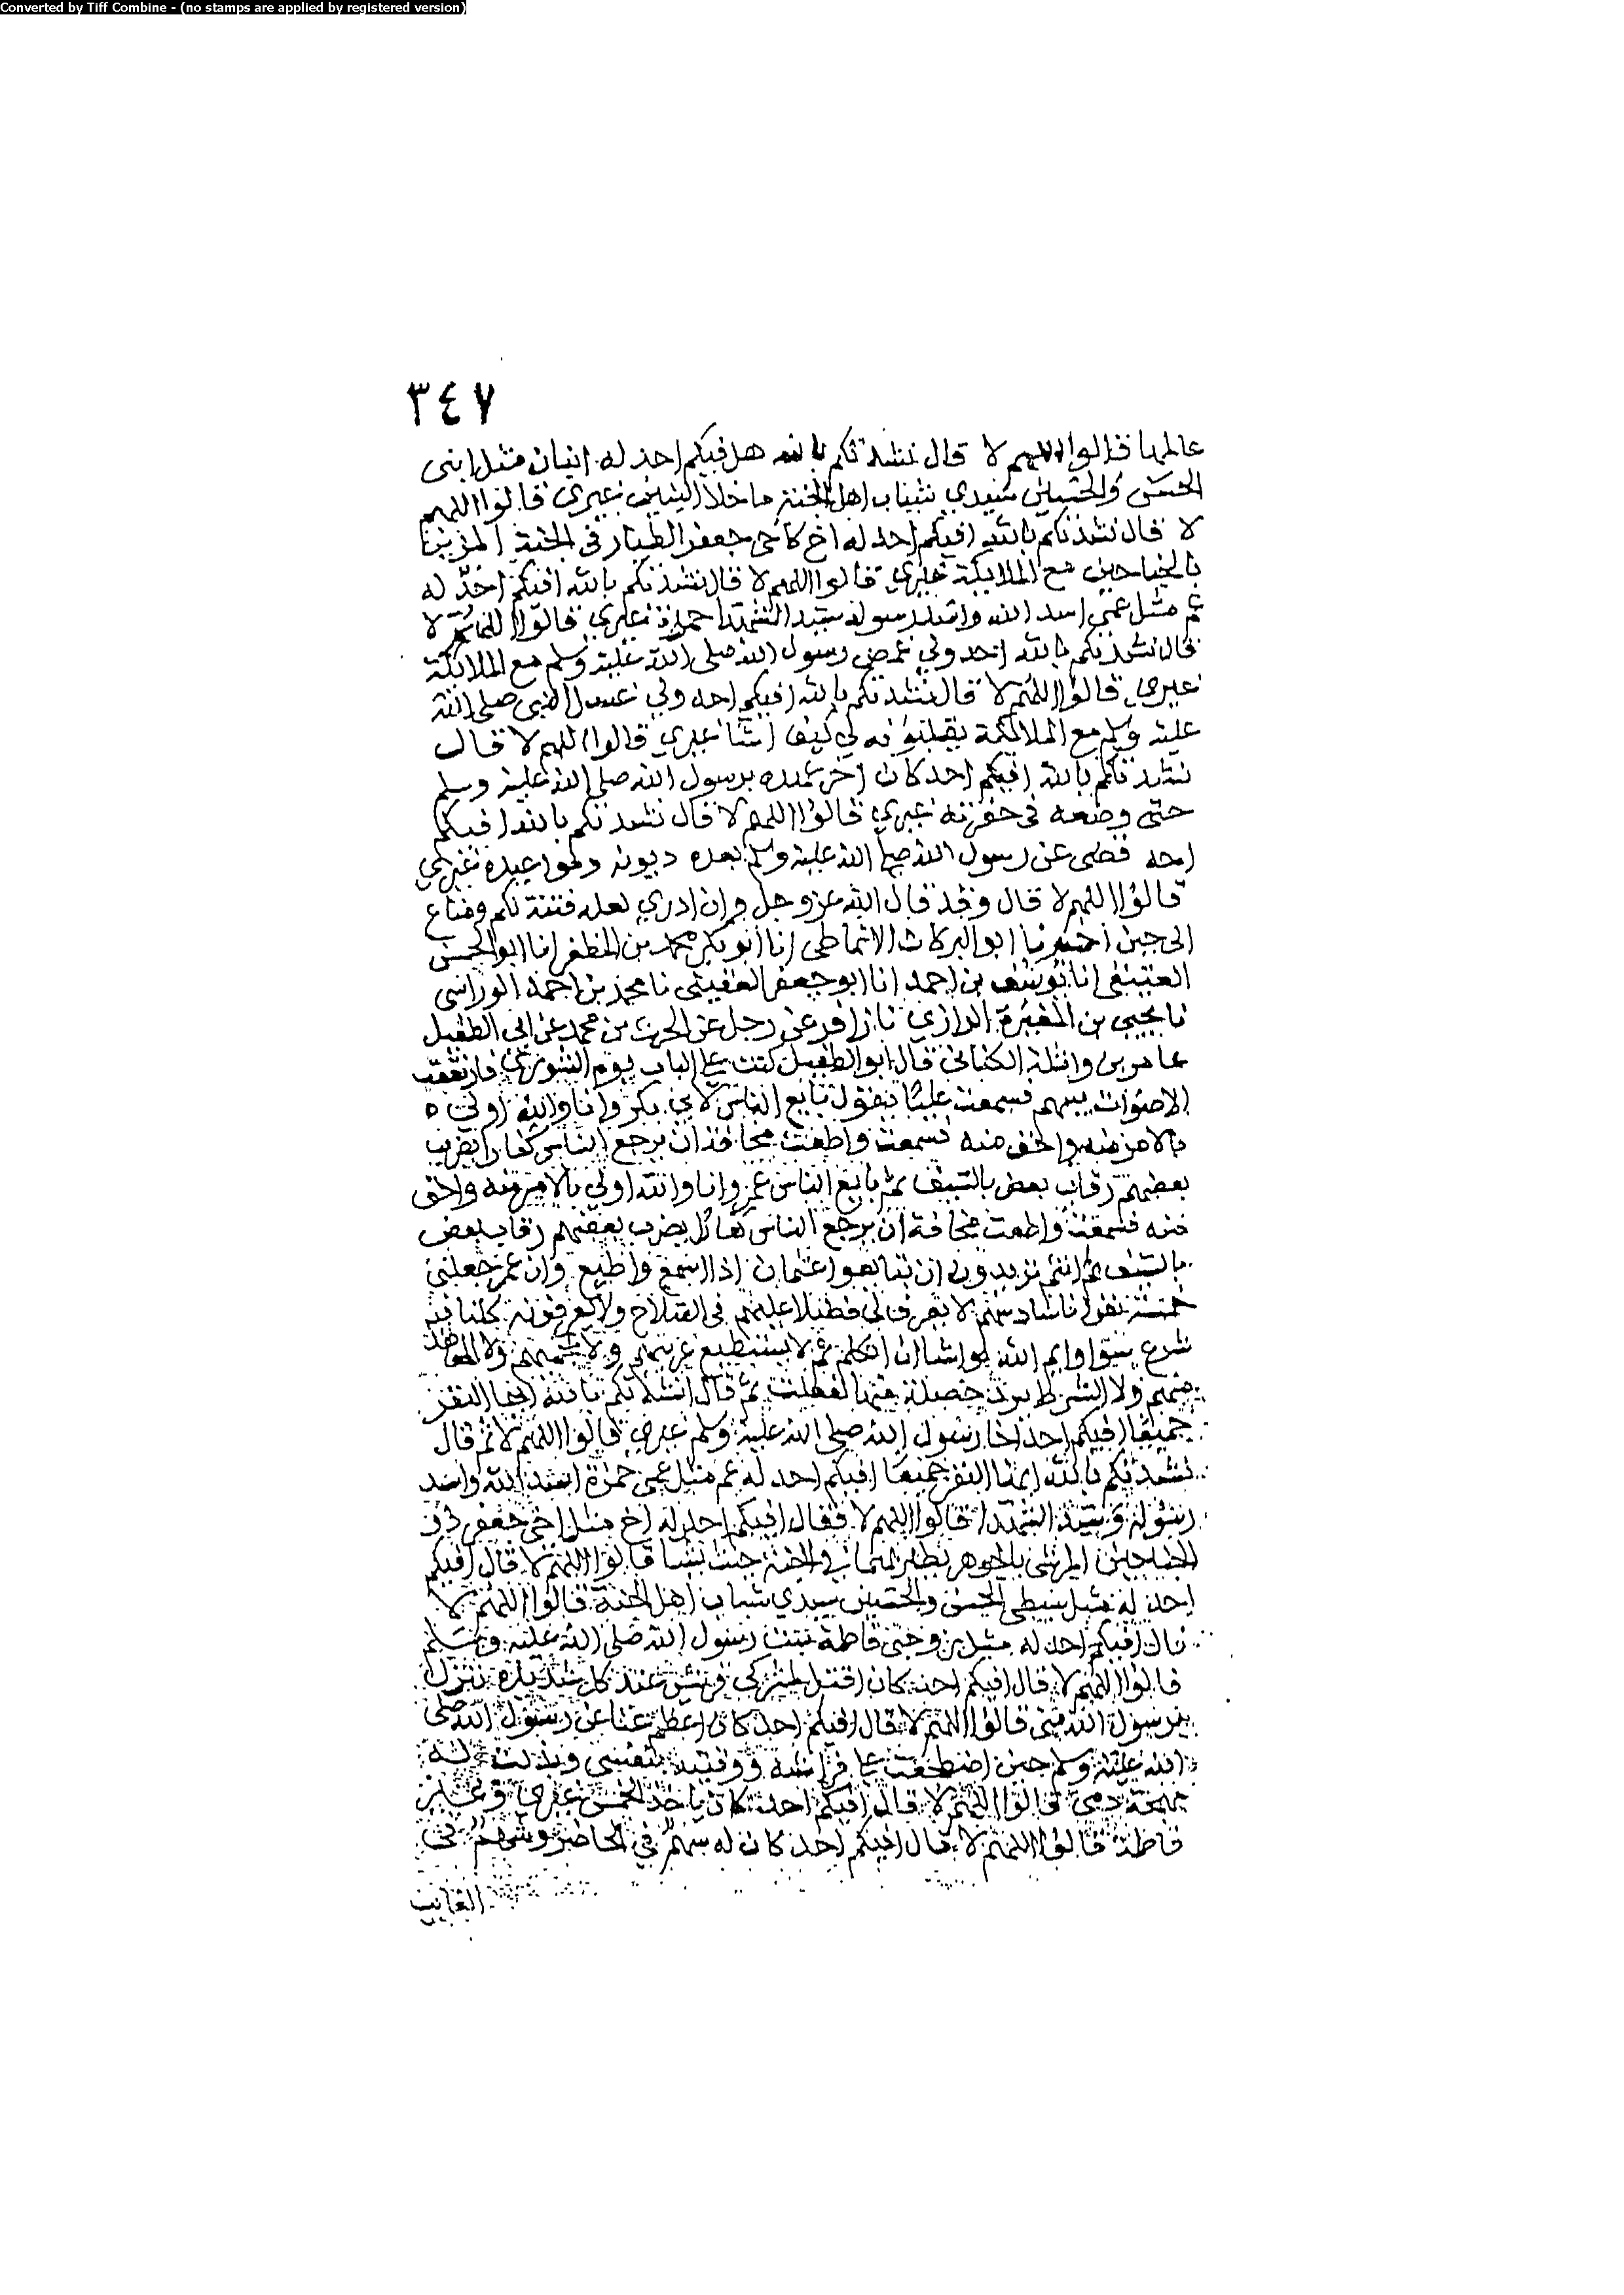 Converted by Tiff Combine - (no stamps are applied by registered version)
٣٤٧
عالمها قالوا اللهم لا قال نشدتكم بالله هل فيكم احد له ابنان مثل ابنى
الحسن والحسين سيدي شباب اهل الجنة ما خلا النبيين غيري قالوا اللهم
لا قال نشدتكم بالله افيكم احد له اخ كاخى جعفر الطيار فى الجنة المزين
بالجناحين مع الملايكة غيري قالوا اللهم لا قال نشدتكم بالله افيكم احد له
عم مثل عمى اسد الله واسد رسوله سيد الشهدا حمزة غيري قالوا اللهم لا
قال نشدتكم بالله احد ولي غمض رسول الله صلى الله عليه وسلم مع الملائكة
غيري قالوا اللهم لا قال نشدتكم بالله افيكم احد ولي غسل النبى صلى الله
عليه وسلم مع الملائكة يقلبونه لي كيف اشا غيري قالوا اللهم لا قال
نشدتكم بالله افيكم احد كان اخر عهده برسول الله صلى الله عليه وسلم
حتى وضعه فى حفرته غيري قالوا اللهم لا قال نشدتكم بالله افيكم
احد قضى عن رسول الله صلى الله عليه وسلم بعده ديونه ومواعيده غيري
قالوا اللهم لا قال وقد قال الله عز وجل وان ادري لعله فتنة لكم ومتاع
الى حين اخبرنا ابو البركات الانماطى انا ابو بكر محمد بن المظفر انا ابو الحسن
العتيقى انا يوسف بن احمد انا ابو جعفر العقيلى نا محمد بن احمد الوراسى
نا يحيى بن المغيرة الرازي نا زافر عن رجل عن الحرث بن محمد عن ابى الطفيل
عامر بن واثلة الكنانى قال ابو الطفيل كنت على الباب يوم الشورى فارتفعت
الاصوات بينهم فسمعت عليا يقول بايع الناس لابي بكر وانا والله اولى ه
بالامر منه واحق منه فسمعت واطعت مخافة ان يرجع الناس كفارا يضرب
بعضهم رقاب بعض بالسيف ثم بايع الناس عمر وانا والله اولى بالامر منه واحق
منه فسمعت واطعت مخافة ان يرجع الناس كفارا يضرب بعضهم رقاب بعض
بالسيف ثم انتم تريدون ان تبايعوا عثمان اذا اسمع واطيع وان عمر جعلني
خمسة نفر انا سادسهم لا يعرف لي فضلا عليهم فى الصلاح ولا يعرفونه كلنا فيه
شرع سوا وايم الله لو اشا ان اتكلم ثم لا يستطيع عربيهم ولا عجميهم ولا المعاهد
منهم ولا المشرك رد خصلة منها لفعلت ثم قال نشدتكم بالله ايها النفر
جميعا افيكم احد اخا رسول الله صلى الله عليه وسلم غيري قالوا اللهم لا ثم قال
نشدتكم بالله ايها النفر جميعا افيكم احد له عم مثل عمى حمزة اسد الله واسد
رسوله وسيد الشهدا قالوا اللهم لا فقال افيكم احد له اخ مثل اخى جعفر ذي
الجناحين الموشى بالجوهر يطير بهما فى الجنة حيث يشا قالوا اللهم لا قال افيكم
احد له مثل سبطى الحسن والحسين سيدي شباب اهل الجنة قالوا اللهم لا
قال افيكم احد له مثل زوجتى فاطمة بنت رسول الله صلى الله عليه وسلم
قالوا اللهم لا قال افيكم احد كان اقتل لمشركى قريش عند كل شديدة تنزل
برسول الله منى قالوا اللهم لا قال افيكم احد كان اعظم غنا عن رسول الله صلى
الله عليه وسلم حين اضطجعت على فراشه ووقيته بنفسى وبذلت له
مهجة دمى قالوا اللهم لا قال افيكم احد كان ياخذ الخمس غيري وغير
فاطمة قالوا اللهم لا قال افيكم احد كان له سهم في الحاضر وسهم فى
الغايب